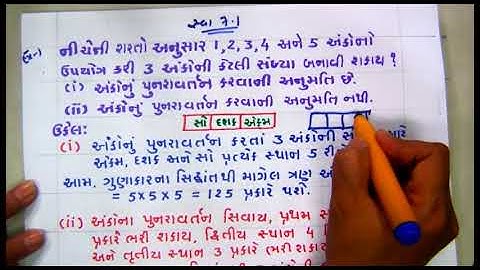 સ્વા 7.1
ઉદા-1 નીચેની શરતો અનુસાર 1, 2, 3, 4 અને 5 અંકોનો
ઉપયોગ કરી 3 અંકોની કેટલી સંખ્યા બનાવી શકાય ?
(i) અંકોનું પુનરાવર્તન કરવાની અનુમતિ છે.
(ii) અંકોનું પુનરાવર્તન કરવાની અનુમતિ નથી.
ઉકેલ: સો દશક એકમ
(i) અંકોનું પુનરાવર્તન કરતાં 3 અંકોની
એકમ, દશક અને સો પ્રત્યેક સ્થાન 5
આમ. ગુણાકારના સિદ્ધાંતથી માગેલ ત્રણ
= 5 x 5 x 5 = 125 પ્રકારે થશે.
(ii) અંકોના પુનરાવર્તન સિવાય, પ્રથમ
પ્રકારે ભરી શકાય, દ્વિતીય સ્થાન 4
અને તૃતીય સ્થાન 3 પ્રકારે ભરી શકાય